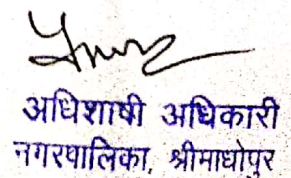 अधिशाषी अधिकारी
नगरपालिका, श्रीमाधोपुर